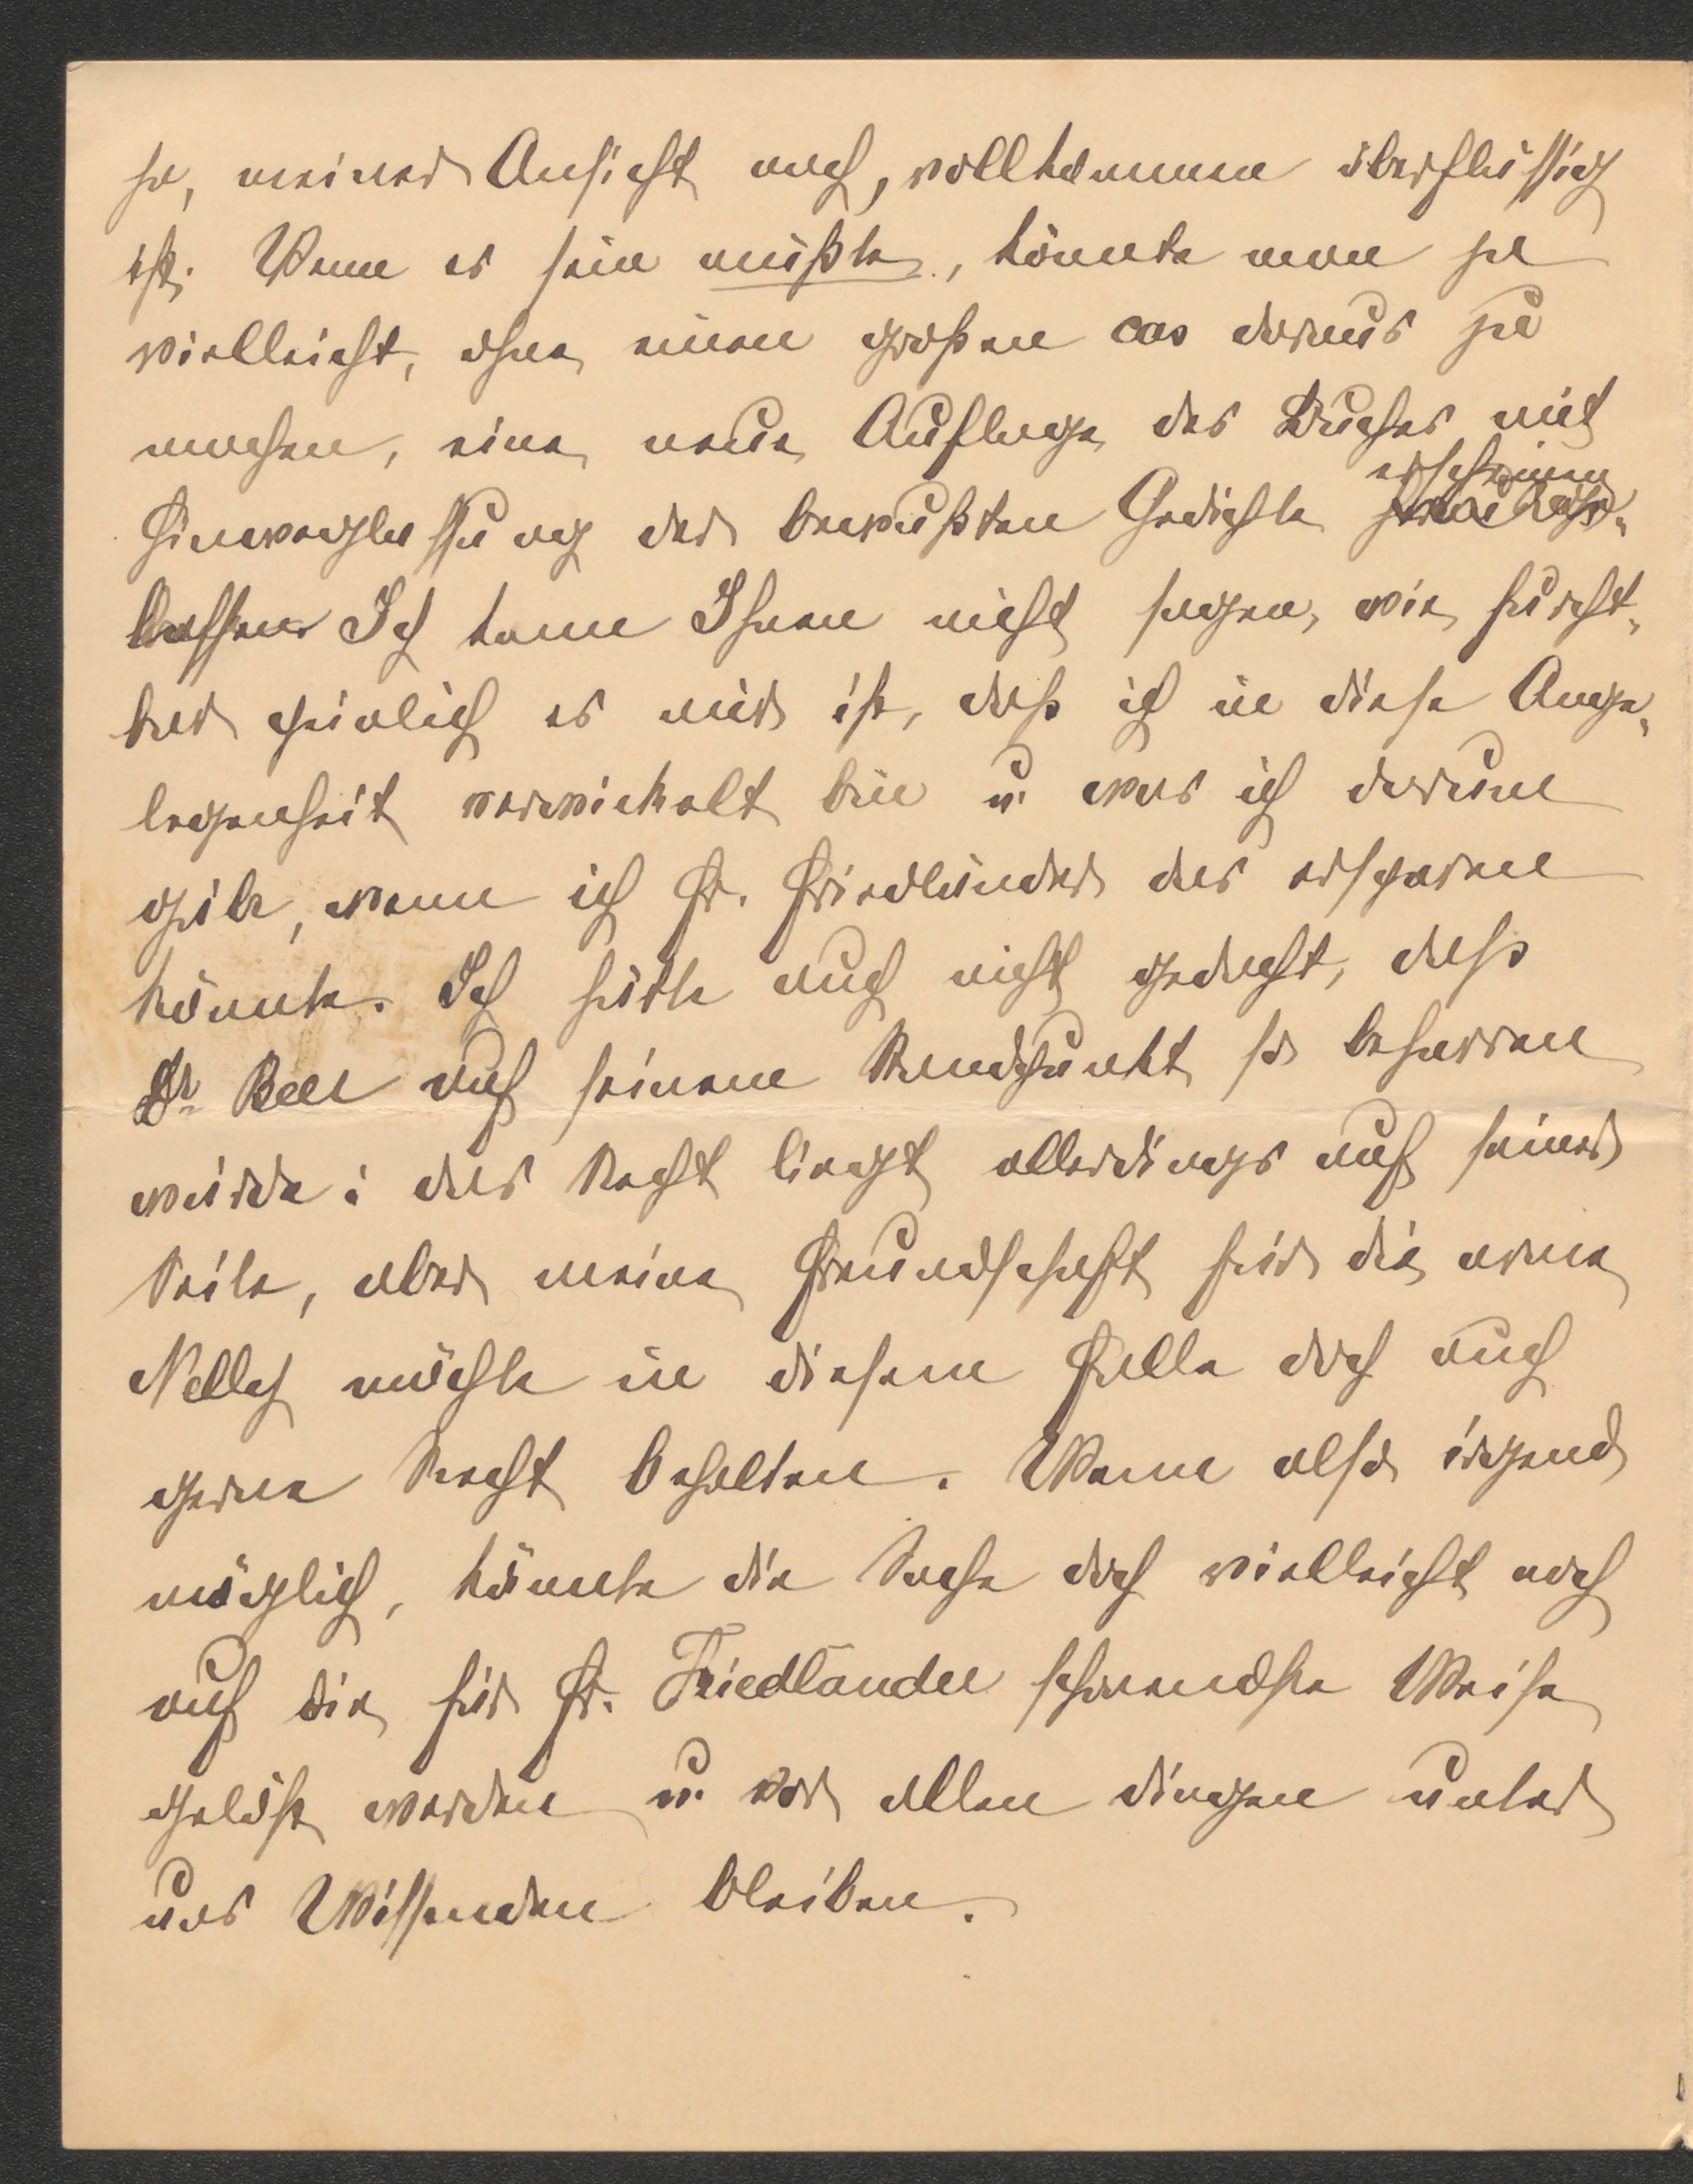 so, meiner Ansicht nach, vollkommen überflüssig
ist. Wenn es sein müßte, könnte man ja
vielleicht, ohne einen großen cas daraus zu
machen, eine neue Auflage des Buches mit
Hinweglassung der bewußten Gedichte erscheinen
lassen. Ich kann Ihnen nicht sagen, wie furcht-
bar peinlich es mir ist, daß ich in diese Ange-
legenheit verwickelt bin u. was ich darum
gäbe, wenn ich Fr. Friedländer das ersparen
könnte. Ich hätte auch nicht gedacht, daß
Dr Beer auf seinem Standpunkt so beharren
würde; das Recht liegt allerdings auf seiner
Seite, aber meine Freundschaft für die arme
Nelly möchte in diesem Falle doch auch
gerne Recht behalten. Wenn also irgend
möglich, könnte die Sache doch vielleicht noch
auf die für Fr. Friedländer schonendste Weise
gelöst werden u. vor allen dingen unter
uns Wissenden bleiben.